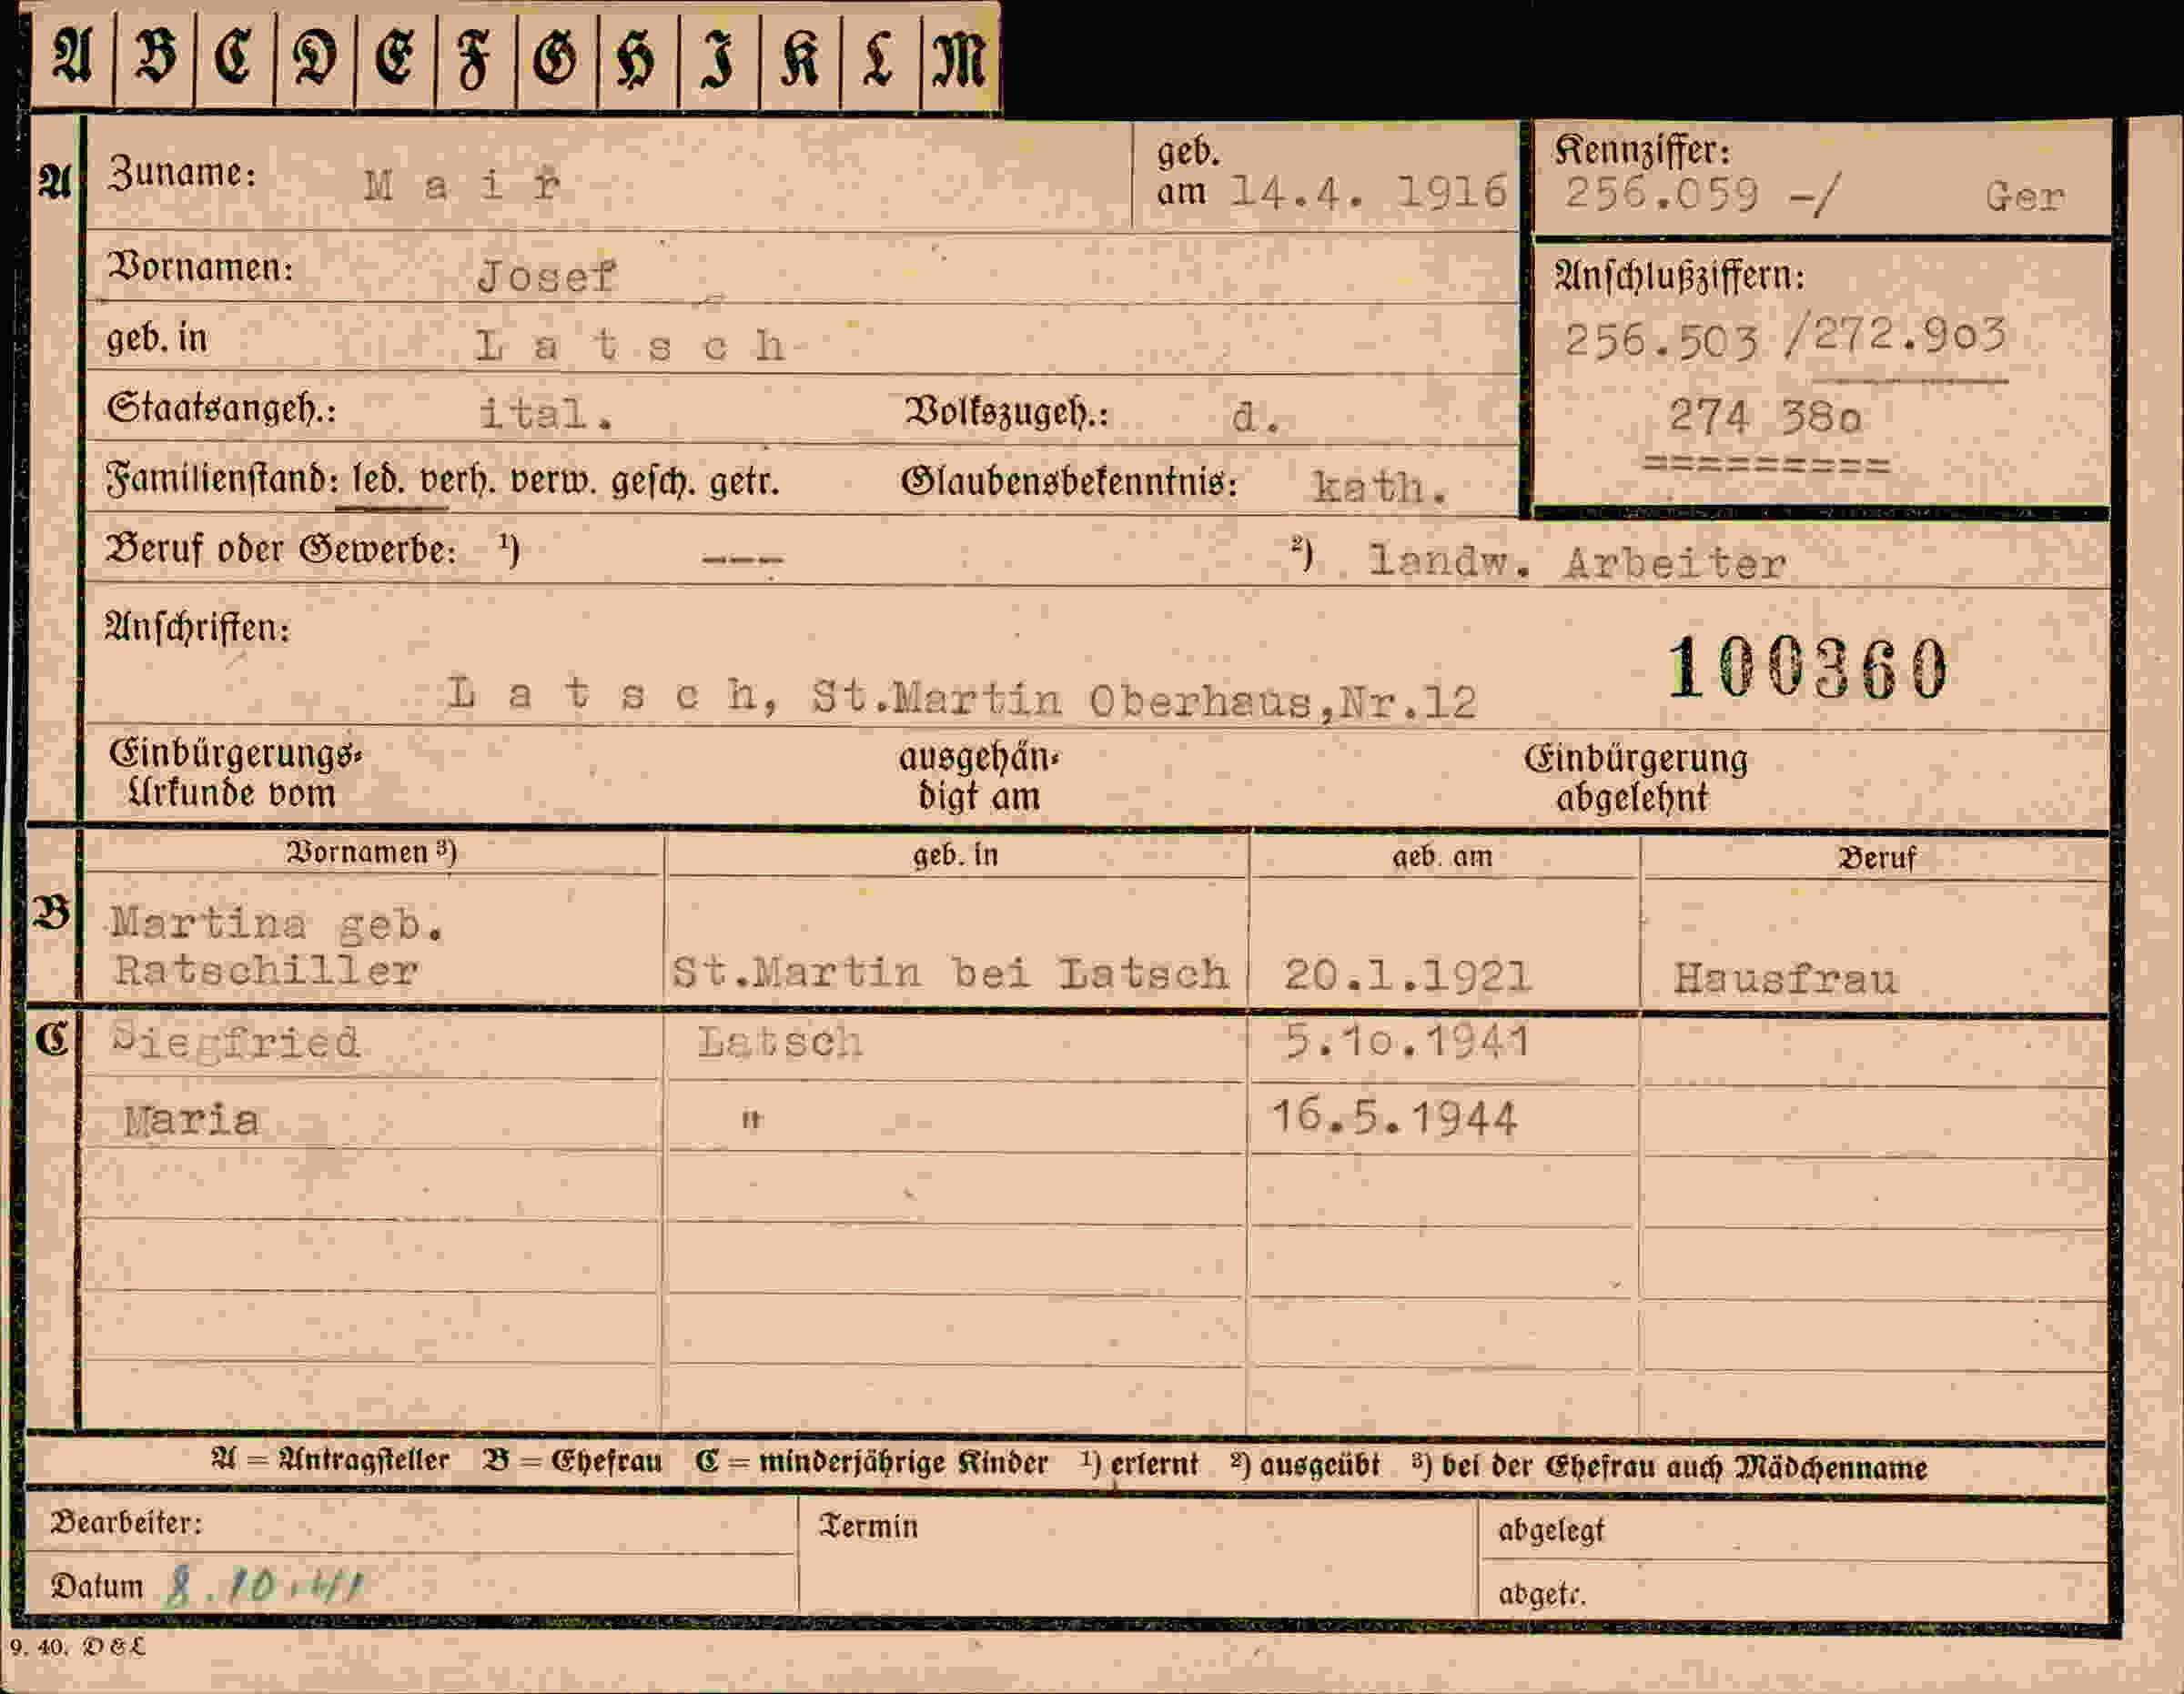 A B C D E F G H I K L M
A Zuname: Mair geb. am 14.4. 1916
Kennziffer: 256.059 -/ Ger
Vornamen: Josef
Anschlußziffern:
geb. in Latsch
256.503 /272.903
Staatsangeh.: ital. Volkszugeh.: d.
274 380
=========
Familienstand: led. verh. verw. gesch. getr. Glaubensbekenntnis: kath.
Beruf oder Gewerbe: 1) --- 2) landw. Arbeiter
Anschriften:
100360
Latsch, St.Martin Oberhaus,Nr.12
Einbürgerungs- ausgehän- Einbürgerung
Urkunde vom digt am abgelehnt
Vornamen 3) geb. in geb. am Beruf
B Martina geb.
Ratschiller St.Martin bei Latsch 20.1.1921 Hausfrau
C Siegfried Latsch 5.10.1941
Maria " 16.5.1944
A = Antragsteller B = Ehefrau C = minderjährige Kinder 1) erlernt 2) ausgeübt 3) bei der Ehefrau auch Mädchenname
Bearbeiter: Termin abgelegt
Datum 8.10.41 abgetr.
9. 40. D & L